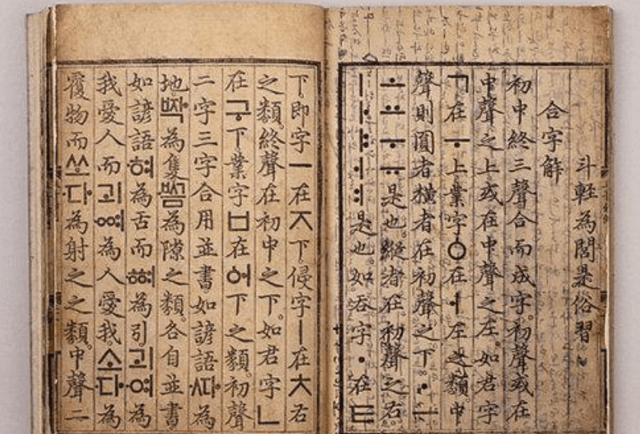 斗輕為閭是俗習
合字解
初中終三聲合而成字。初聲或在
中聲之上或在中聲之左。如君字
ㄱ在ㅜ上業字ㆁ在ㅓ左之類。中
聲則圓者橫者在初聲之下ㆍㅡ
ㅗㅛㅜㅠ是也縱者在初聲之右
ㅣㅏㅑㅓㅕ是也如呑字ㆍ在ㅌ
下即字ㅡ在ㅈ下侵字ㅣ在ㅊ右
之類。終聲在初中之下。如君字ㄴ
在구下業字ㅂ在ᅌᅥ下之類初聲
二字三字合用並書如諺語ᄯᅡ為
地ᄧᅡᆨ為隻ᄢᅳᆷ為隙之類。各自並書
如諺語혀為舌而ᅘᅧ為引괴여為
我愛人而괴ᅇᅧ為人愛我소다為
覆物而쏘다為射之之類。中聲二